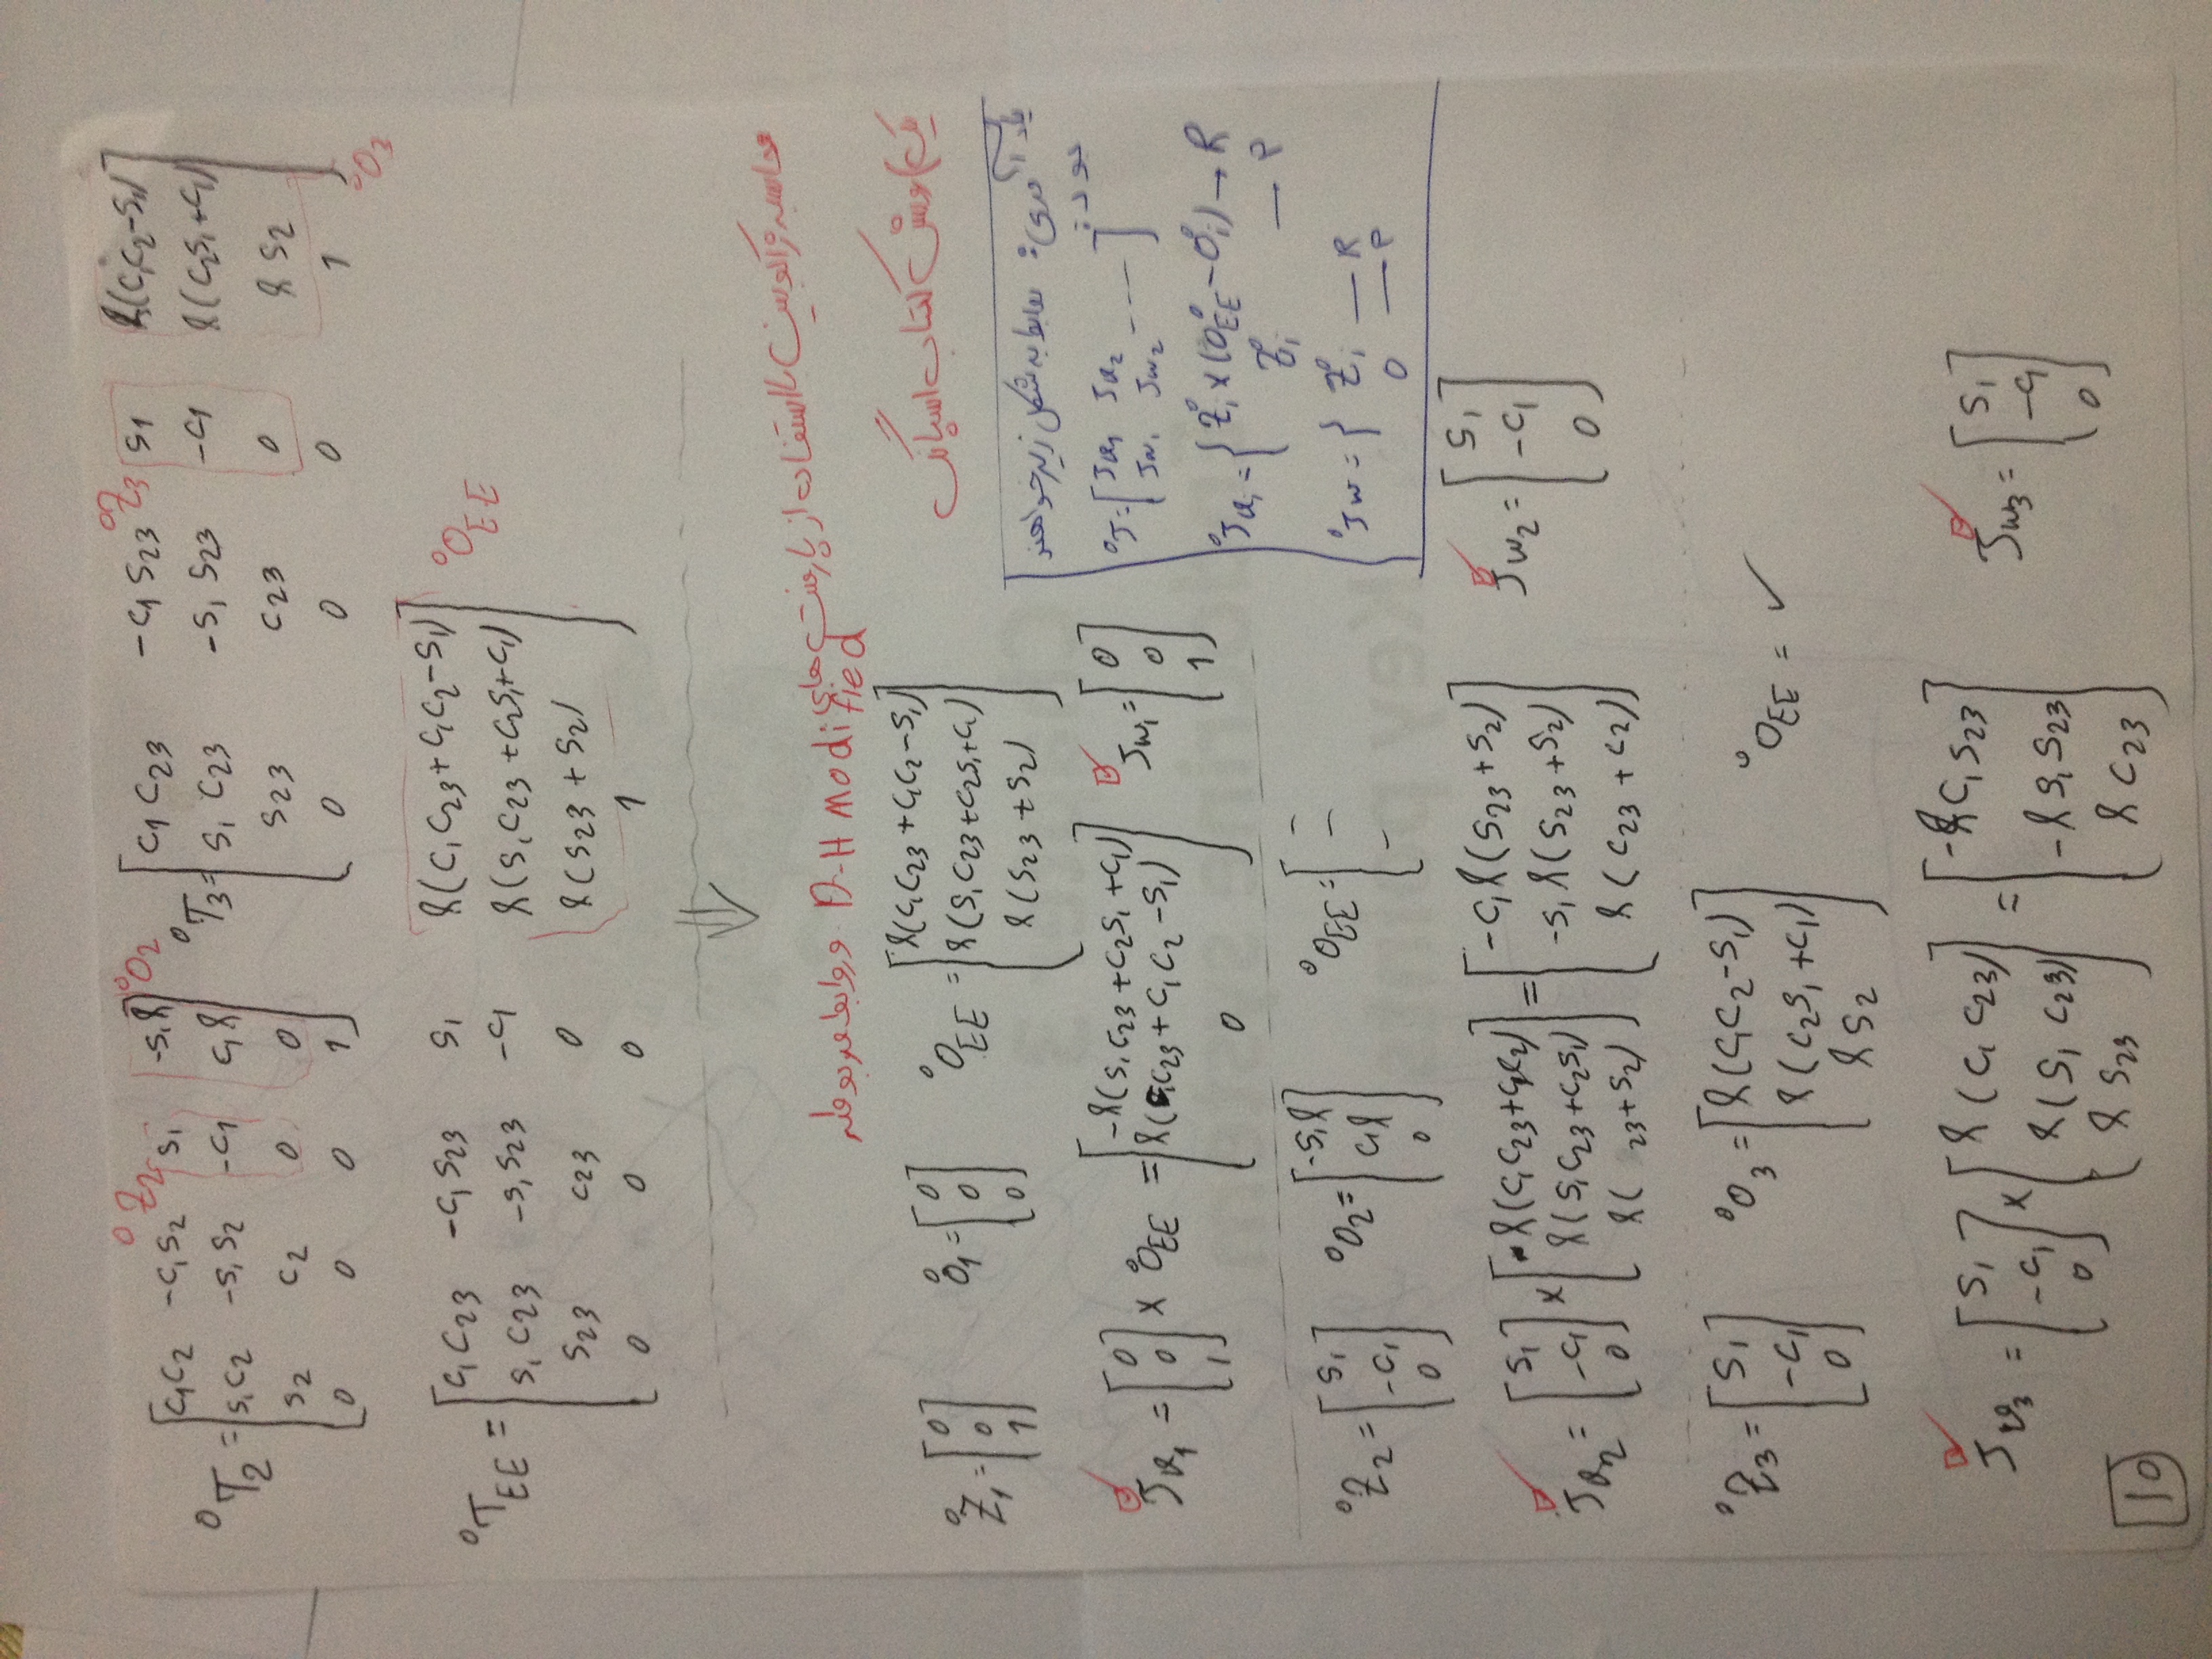 ⁰T₂ = [ c₁c₂ -c₁s₂ s₁ -s₁l ; s₁c₂ -s₁s₂ -c₁ c₁l ; s₂ c₂ 0 0 ; 0 0 0 1 ] ⁰Z₂ ⁰O₂
⁰T₃ = [ c₁c₂₃ -c₁s₂₃ s₁ l(c₁c₂-s₁) ; s₁c₂₃ -s₁s₂₃ -c₁ l(c₂s₁+c₁) ; s₂₃ c₂₃ 0 l s₂ ; 0 0 0 1 ] ⁰Z₃ ⁰O₃
⁰T_EE = [ c₁c₂₃ -c₁s₂₃ s₁ l(c₁c₂₃+c₁c₂-s₁) ; s₁c₂₃ -s₁s₂₃ -c₁ l(s₁c₂₃+c₂s₁+c₁) ; s₂₃ c₂₃ 0 l(s₂₃+s₂) ; 0 0 0 1 ] ⁰O_EE
⇓
محاسبه ژاکوبین با استفاده از پارامتر های
D-H modified و روابط مربوطه
یک) روش کتاب اسپانگ
⁰Z₁ = [ 0 ; 0 ; 1 ] ⁰O₁ = [ 0 ; 0 ; 0 ] ⁰O_EE = [ l(c₁c₂₃+c₁c₂-s₁) ; l(s₁c₂₃+c₂s₁+c₁) ; l(s₂₃+s₂) ]
یادآوری: روابط به شکل زیر خواهند
بود:
⁰J = [ Jv₁ Jv₂ ---- ; Jw₁ Jw₂ ]
⁰Jvᵢ = { Zᵢ⁰ × (O_EE⁰ - Oᵢ⁰) → R
Zᵢ⁰ — P
⁰Jw = { Zᵢ⁰ — R
0 — P
Jv₁ = [ 0 ; 0 ; 1 ] × ⁰O_EE = [ -l(s₁c₂₃+c₂s₁+c₁) ; l(c₁c₂₃+c₁c₂-s₁) ; 0 ] Jw₁ = [ 0 ; 0 ; 1 ]
⁰Z₂ = [ s₁ ; -c₁ ; 0 ] ⁰O₂ = [ -s₁l ; c₁l ; 0 ] ⁰O_EE = [ - ; - ; - ]
Jv₂ = [ s₁ ; -c₁ ; 0 ] × [ l(c₁c₂₃+c₁c₂) ; l(s₁c₂₃+c₂s₁) ; l( ₂₃+s₂) ] = [ -c₁l(s₂₃+s₂) ; -s₁l(s₂₃+s₂) ; l(c₂₃+c₂) ] Jw₂ = [ s₁ ; -c₁ ; 0 ]
⁰Z₃ = [ s₁ ; -c₁ ; 0 ] ⁰O₃ = [ l(c₁c₂-s₁) ; l(c₂s₁+c₁) ; l s₂ ] ⁰O_EE = ✓
Jv₃ = [ s₁ ; -c₁ ; 0 ] × [ l(c₁c₂₃) ; l(s₁c₂₃) ; l s₂₃ ] = [ -l c₁s₂₃ ; -l s₁s₂₃ ; l c₂₃ ] Jw₃ = [ s₁ ; -c₁ ; 0 ]
10